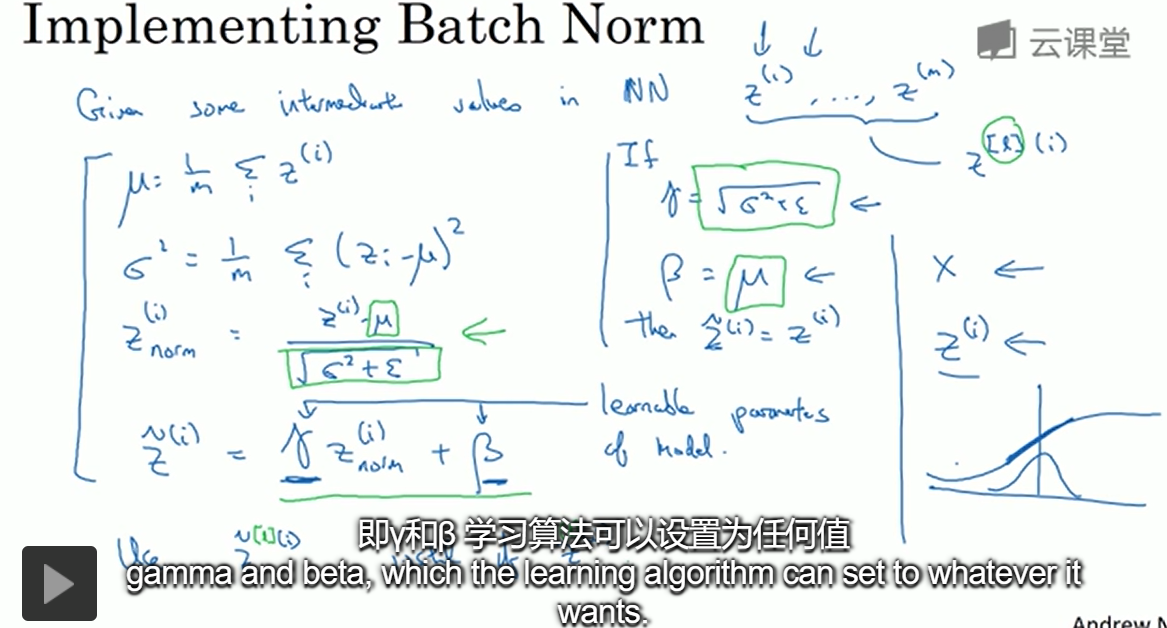 Implementing Batch Norm
云课堂
Given some intermediate values in NN z^(i), ..., z^(m)
z^[l](i)
μ = 1/m Σ_i z^(i)
σ² = 1/m Σ_i (z_i - μ)²
z^(i)_norm = (z^(i) - μ) / √(σ² + ε)
z̃^(i) = γ z^(i)_norm + β
If
γ = √(σ² + ε) ←
β = μ ←
then z̃^(i) = z^(i)
learnable parameters
of model.
X ←
z^(i) ←
Use z̃^[l](i)
即γ和β 学习算法可以设置为任何值
gamma and beta, which the learning algorithm can set to whatever it
wants.
Andrew N